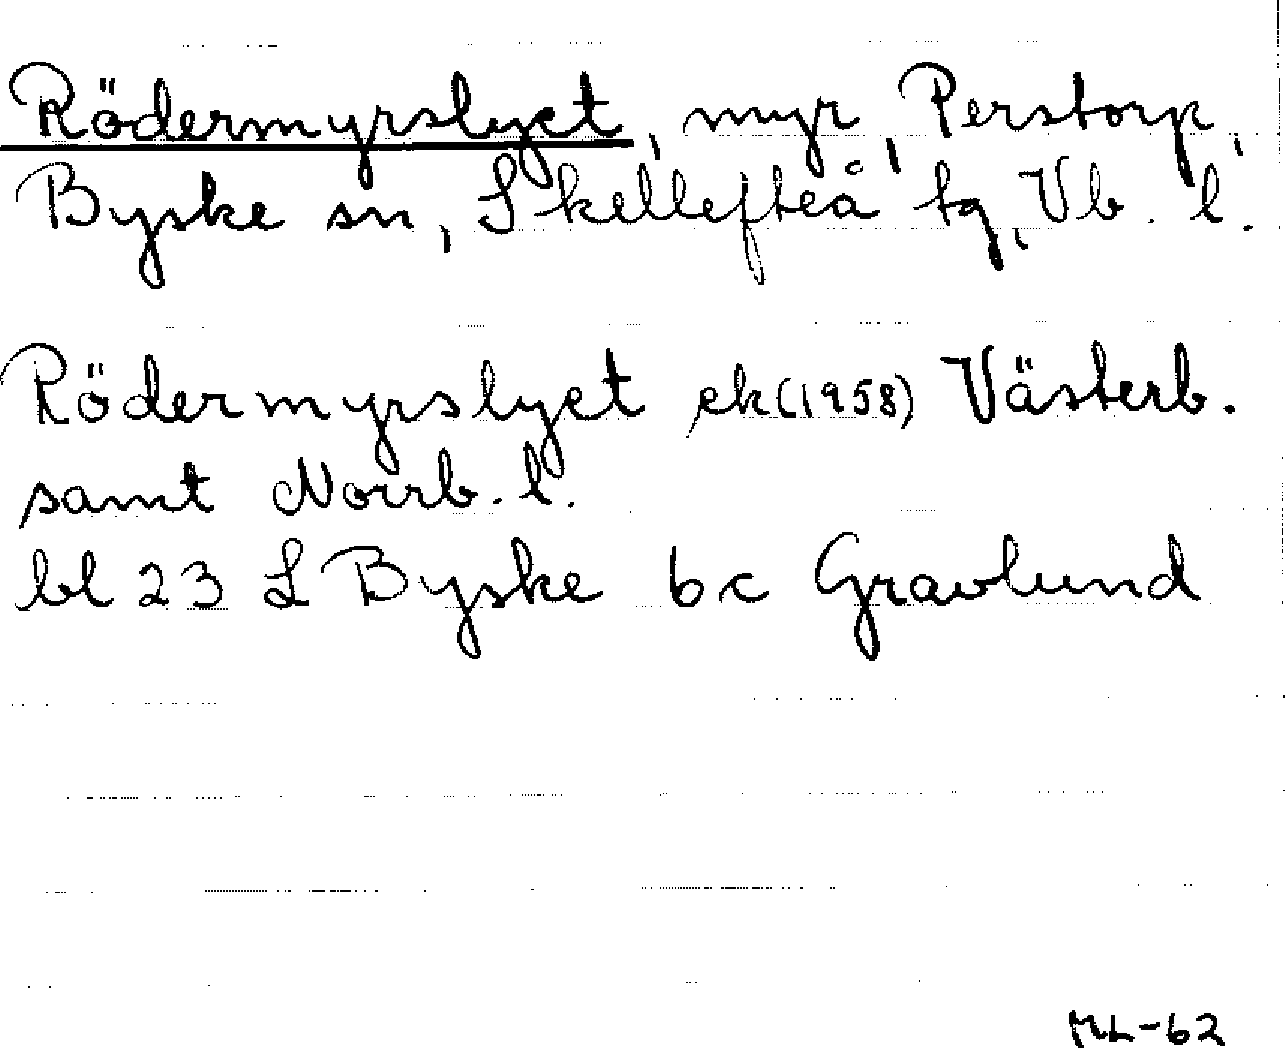 Rödermyrslyct, myr, Perstorp,
Byske sn, Skellefteå tg, Vb. l.
Rödermyrslyct ek (1958) Västerb.
samt Norrb. l.
bl 23 L Byske bc Gravlund
ML-62